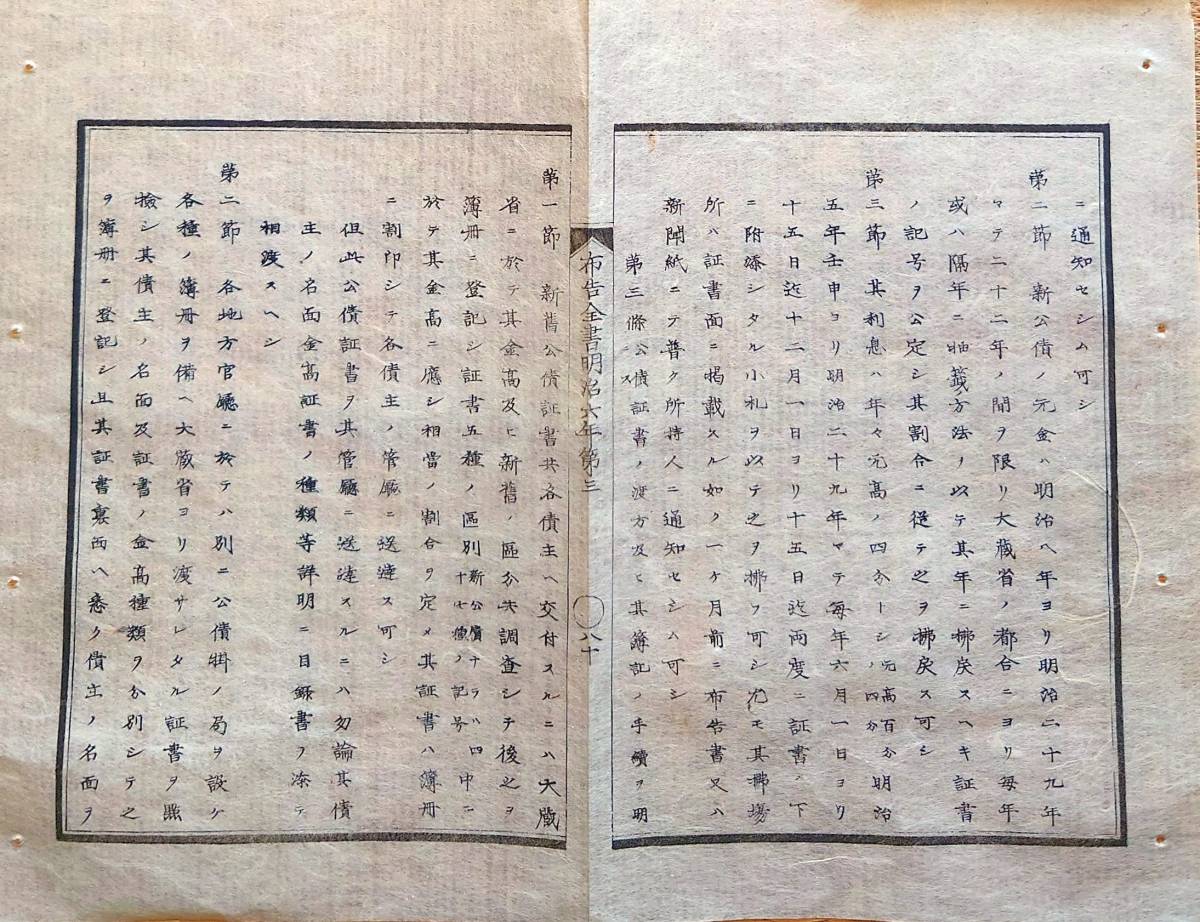 ニ通知セシム可シ
第二節 新公債ノ元金ハ明治八年ヨリ明治二十九年
マテ二十二年ノ間ヲ限リ大蔵省ノ都合ニヨリ毎年
或ハ隔年ニ抽籤ノ方法ヲ以テ其年ニ拂戻スヘキ証書
ノ記号ヲ公定シ其割合ニ従テ之ヲ拂戻ス可シ
第三節 其利息ハ年々元高ノ四分トシ元高百分ノ四分明治
五年壬申ヨリ明治二十九年マテ毎年六月一日ヨリ
十五日迄十二月一日ヨリ十五日迄両度ニ証書ノ下
ニ附添シタル小札ヲ以テ之ヲ拂フ可シ尤モ其拂場
所ハ証書面ニ掲載スル如ク一ケ月前ニ布告書又ハ
新聞紙ニテ普ク所持人ニ通知セシム可シ
第三條 公債証書ノ渡方及ヒ其簿記ノ手續ヲ明ニス
布告全書明治六年第三
八十
第一節 新舊公債証書共各債主ヘ交付スルニハ大蔵
省ニ於テ其金高及ヒ新舊ノ區分失調査シテ後之ヲ
簿冊ニ登記シ証書五種ノ區別新公債ナラハ四中ニ十七種ノ記号
於テ其金高ニ應シ相當ノ割合ヲ定メ其証書ハ簿冊
ニ割印シテ各債主ノ管廳ニ送達ス可シ
但此公債証書ヲ其管廳ニ送達スルニハ勿論其債
主ノ名面金高証書ノ種類等詳明ニ目録書ヲ添テ
相渡スヘシ
第二節 各地方官廳ニ於テハ別ニ公債掛ノ局ヲ設ケ
各種ノ簿冊ヲ備ヘ大蔵省ヨリ渡サレタル証書ヲ點
檢シ其債主ノ名面及証書ノ金高種類ヲ分別シテ之
ヲ簿冊ニ登記シ且其証書裏面ヘ悉ク債主ノ名面ヲ